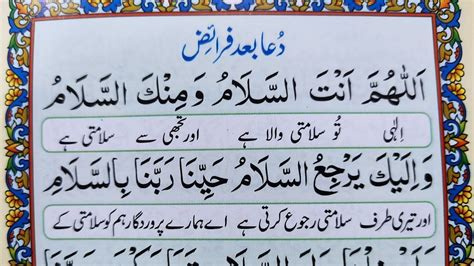 دُعا بعد فرائض
اَللّٰهُمَّ اَنْتَ السَّلَامُ وَمِنْكَ السَّلَامُ
اِلٰہی تُو سلامتی والا ہے اور تجھی سے سلامتی ہے
وَاِلَيْكَ يَرْجِعُ السَّلَامُ حَيِّنَا رَبَّنَا بِالسَّلَامِ
اور تیری طرف سلامتی رجوع کرتی ہے اے ہمارے پروردگار ہم کو سلامتی کے